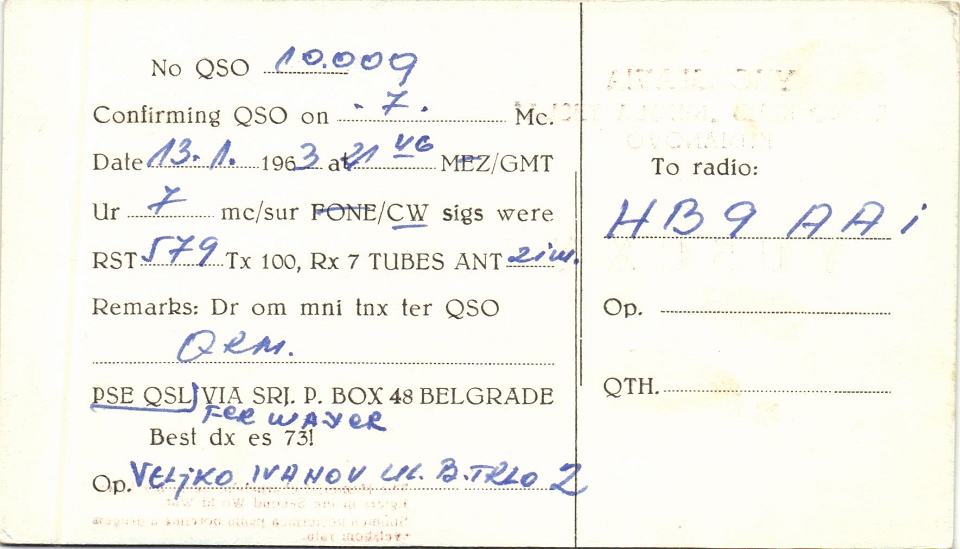 No QSO 10.009
Confirming QSO on - 7. Mc.
Date 13.1. 1963 at 21 MEZ/GMT
Ur 7 mc/sur FONE/CW sigs were
RST 579 Tx 100, Rx 7 TUBES ANT
Remarks: Dr om mni tnx ter QSO
QRM.
PSE QSL VIA SRJ. P. BOX 48 BELGRADE
FER WAYER
Best dx es 73!
Op. VELjKO IVANOV UL. B. TRLO 2
To radio:
HB9 AAi
Op.
QTH.